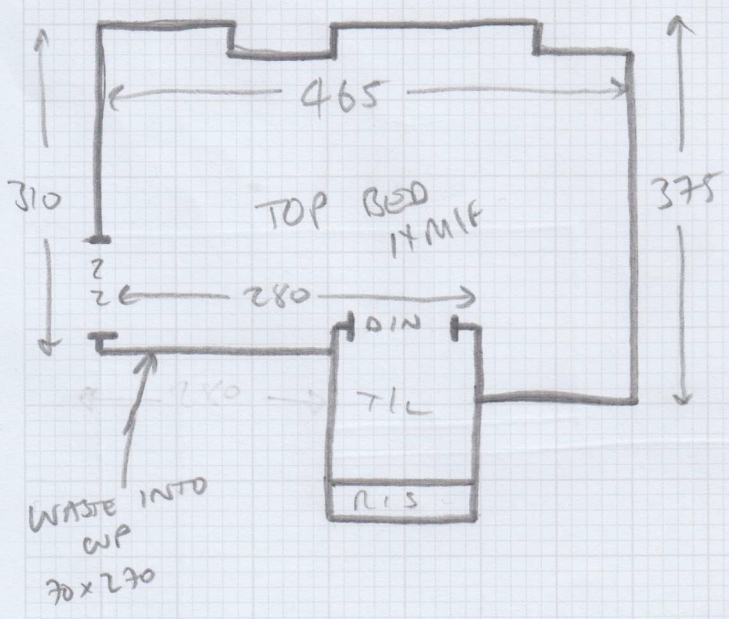 465
310
375
TOP BED
1XM/F
2
2
280
D/N
T/L
280
R/S
WASTE INTO
CUP
70 x 270